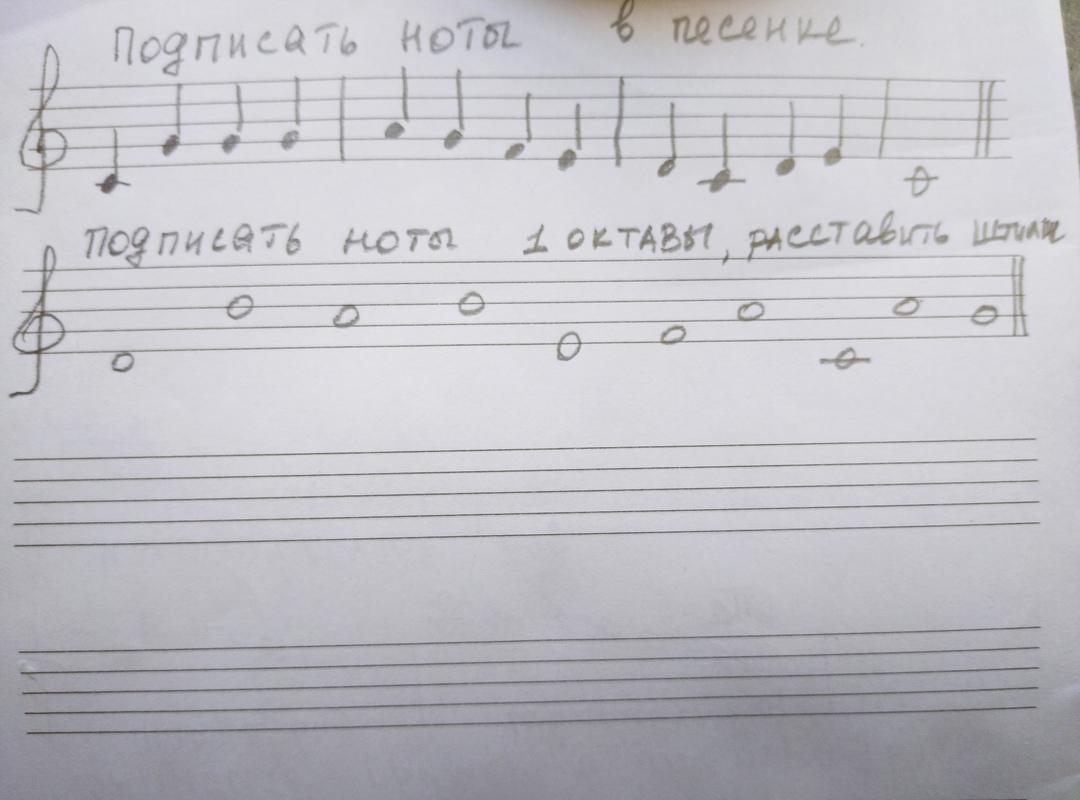 Подписать ноты в песенке.
Подписать ноты 1 октавы, расставить штили